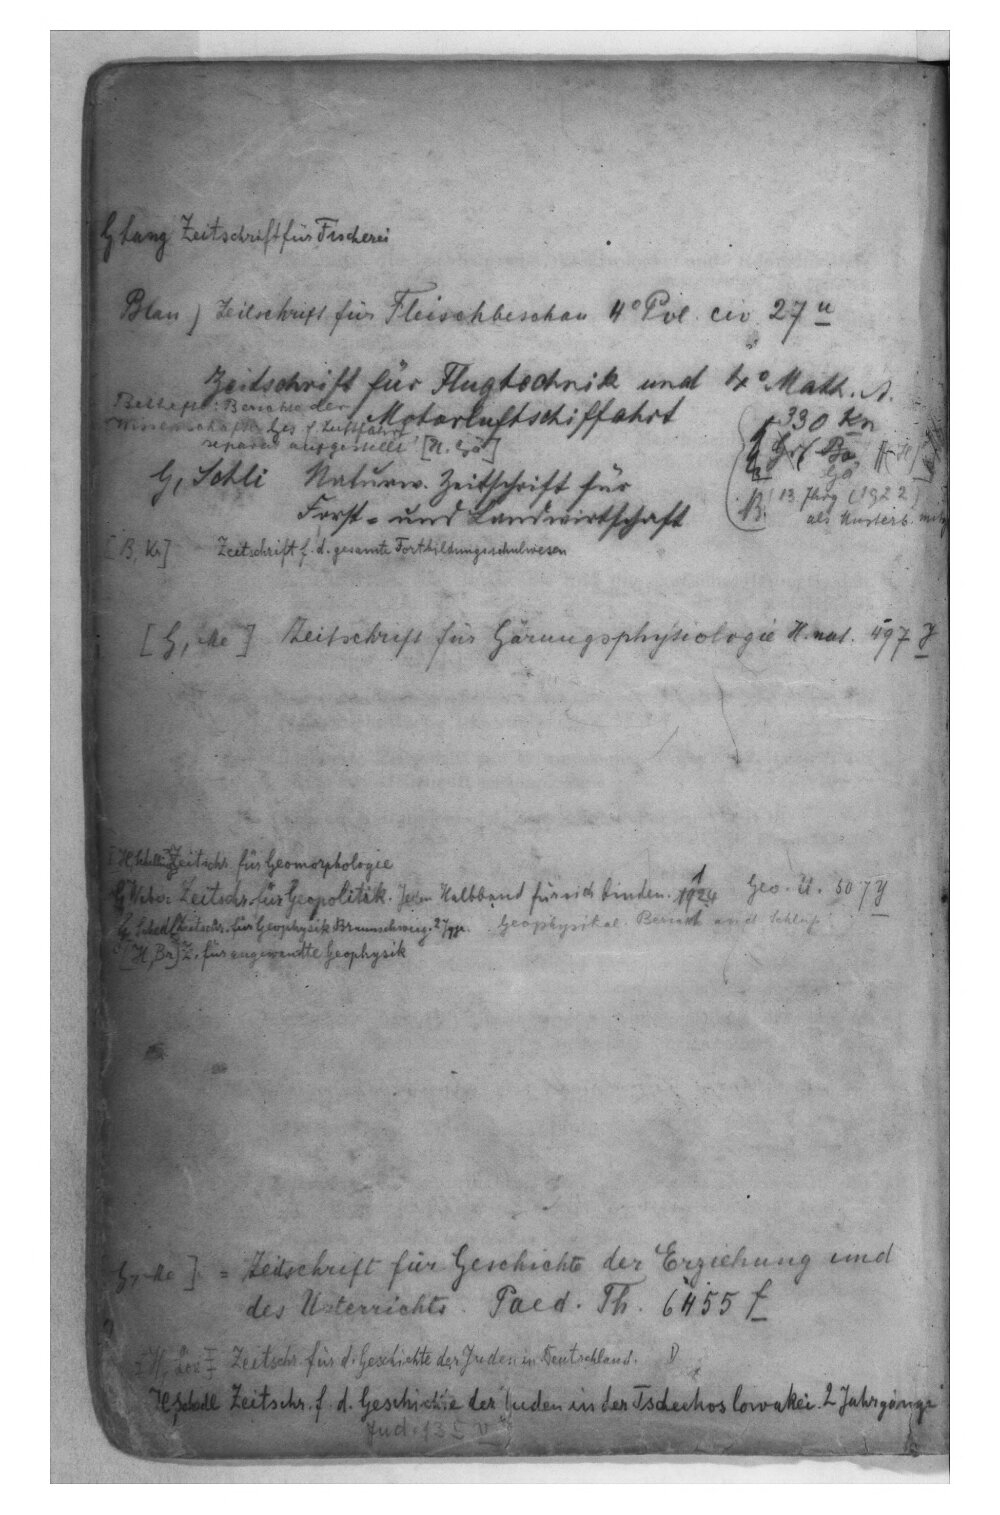 G Lang Zeitschrift für Fischerei
Blau) Zeitschrift für Fleischbeschau 4° Pol. civ. 27 u
Zeitschrift für Flugtechnik und 4° Math. A.
Motorluftschiffahrt 330 Kn
Beihefte: Berichte der
Wissenschaftl. Ges. f. Luftfahrt
separat aufgestellt [H. Gö]
13. Jhrg (1922)
G, Schli Naturw. Zeitschrift für
Forst- und Landwirtschaft
[B, Kr] Zeitschrift f. d. gesamte Fortbildungsschulwesen
[G, Me] Zeitschrift für Gärungsphysiologie H. nat. 497 y
Zeitschr. für Geomorphologie
G Zeitschr. für Geopolitik. Jeden Halbband für sich binden. 1924 Geo. U. 507 y
Zeitschr. für Geophysik Braunschweig. 2 Jgge. Geophysikal.
[H, Br] Z. für angewandte Geophysik
G, Me] = Zeitschrift für Geschichte der Erziehung und
des Unterrichts. Paed. Th. 6455 f
Zeitschr. für d. Geschichte der Juden in Deutschland.
Zeitschr. f. d. Geschichte der Juden in der Tschechoslowakei. 2 Jahrgänge
Jud.